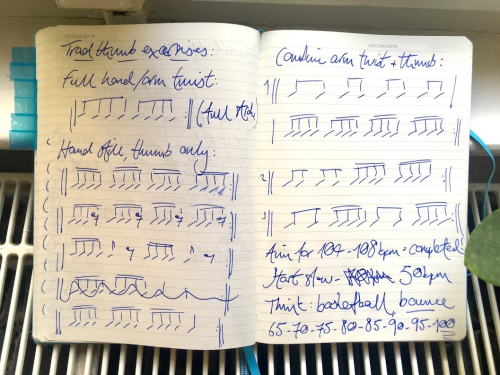 Trad thumb exercises:
Full hand/arm twist:
(full stick)
Hand still, thumb only:
DATUM/DATE
Combine arm twist + thumb:
1)
2)
3)
Aim for 104 - 108 bpm = completed!
Start slow - 50 bpm
Think: basketball, bounce
65-70-75-80-85-90-95-100